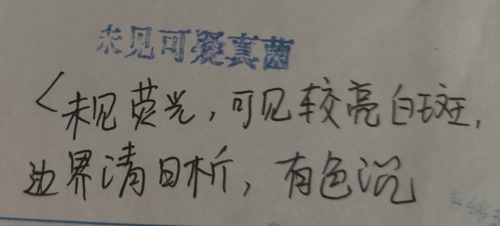 未见可疑真菌
<未见荧光,可见较亮白斑,
边界清晰,有色沉